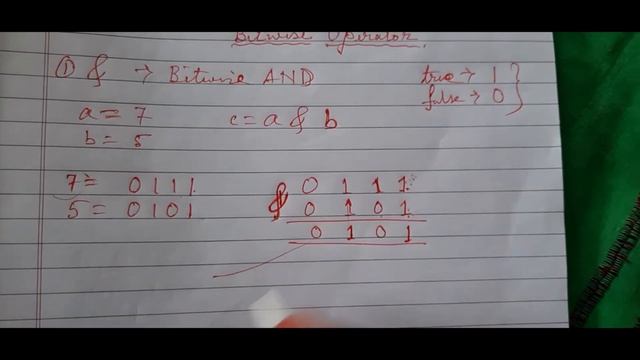 Bitwise Operator
① & → Bitwise AND
true → 1
false → 0
a = 7
c = a & b
b = 5
7 = 0 1 1 1
5 = 0 1 0 1
0 1 1 1
& 0 1 0 1
0 1 0 1